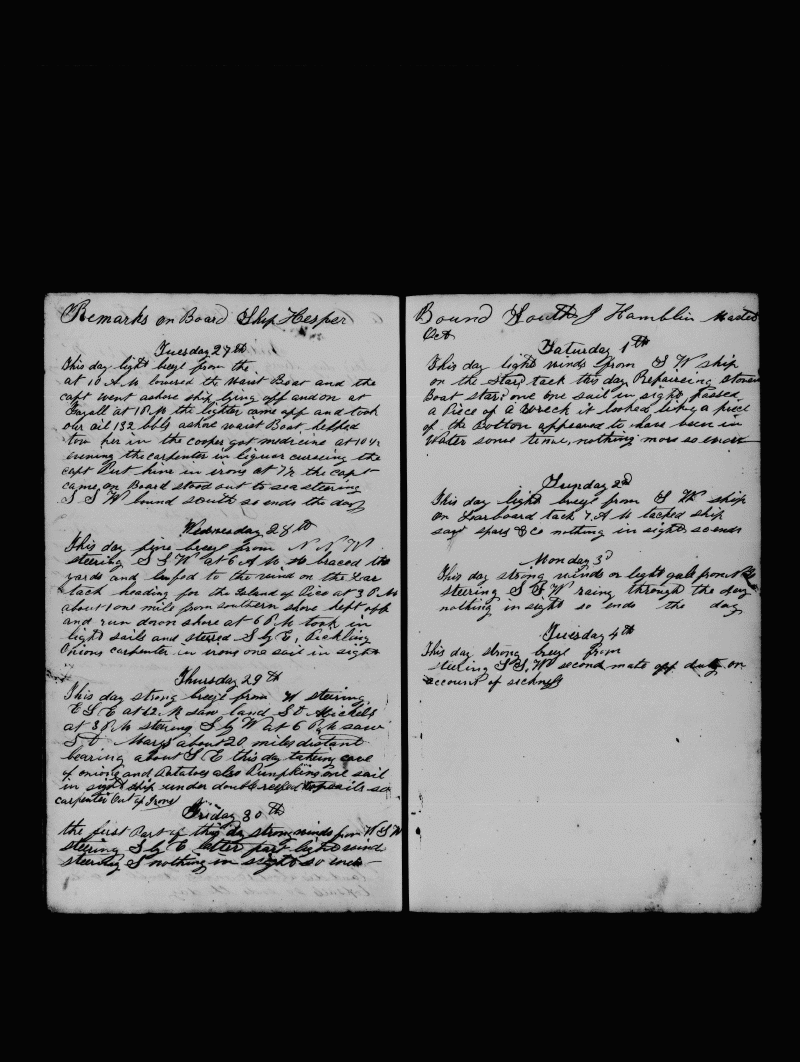 Remarks on Board Ship Hesper
Tuesday 27th
This day light breze from the
at 10 A M lowered the waist Boat and the
capt went ashore ship lying off and on at
Fayall at 1 P M the lighter came off and took
our oil 132 bbls ashore waist Boat helped
tow her in the cooper got medicine at
evening the carpenter in liquor curseing the
capt Put hime in irons at 7½ the capt
came on Board stood out to sea steering
S S W bound south so ends the day
Wednesday 28th
This day fine breze from N N W
steering S S W at 6 A M braced the
yards and lufed to the wind on the Lar
tack heading for the Island of Pico at 3 P M
about 1 one mile from southern shore kept off
and run down shore at 6 P M took in
light sails and stered S by E, Pickling
Onions carpenter in irons one sail in sight
Thursday 29th
This day strong breze from W steering
E S E at 12 M saw land St Michels
at 3 P M stering S by W at 6 P M saw
St Marys about 20 miles distant
bearing about S E this day taking care
of onions and Potatoes also Pumpkins one sail
in sight ship under double reefed topsails so
carpenter Out of Irons
Friday 30th
the first Part of this day strong winds from W S W
steering S by E latter part light wind
steering S nothing in sight so ends
Bound South J Hamblin Master
Oct
Saturday 1th
This day light winds from S W ship
on the Star tack this day Repairing stoven
Boat star one one sail in sight Passed
a Piece of a wreck it looked like a piece
of the Bottom appeared to have been in
Water some time, nothing more so ends
Sunday 2d
This day light breze from S W ship
on Larboard tack 7 A M tacked ship
saw spars &co nothing in sight so ends
Monday 3d
This day strong winds or light gale from
steering S S W raing through the day
nothing in sight so ends the day
Tuesday 4th
This day strong breze from
steering S S. W second mate off duty on
account of sickness